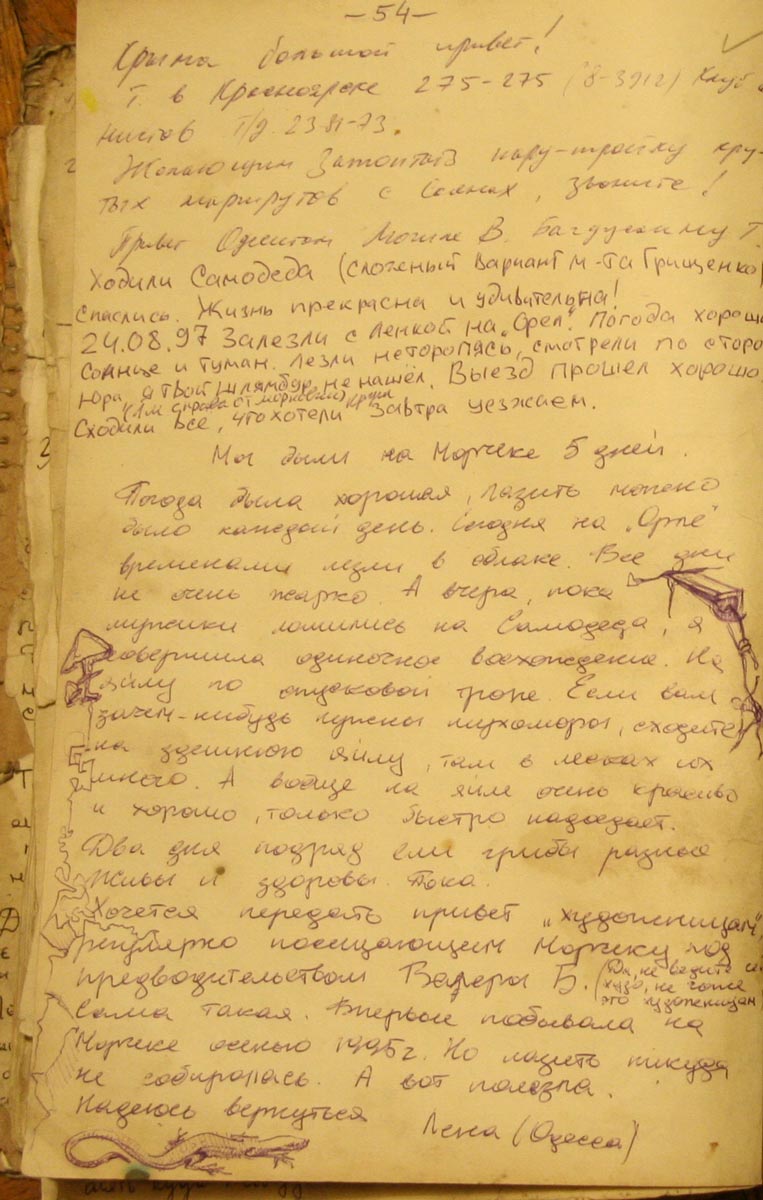 -54-
большой привет!
Т. в Красноярске 275-275 (8-3912) Клуб
нистов
Желающим пару-тройку кру-
тых маршрутов в Саянах, звоните!
Привет Одесситам В. Т.
Ходили Самоеда (сложеный вариант м-та Грищенко)
Спаслись. Жизнь прекрасна и удивительна!
24.08.97 Залезли с Ленкой на „Орёл". Погода хорош
Солнце и туман. Лезли неторопясь, смотрели по сторо
Юра, я твой шлямбур. не нашёл. Выезд прошёл хорошо.
(1м справа от морковки) крюк
Сходили всё, что хотели Завтра уезжаем.
Мы были на Морчеке 5 дней.
Погода была хорошая, лазить можно
было каждый день. Сегодня на „Орле"
временами лезли в облаке. Все дни
не очень жарко. А вчера, пока
мужики ломились на Самодеда, я
совершила одиночное восхождение. На
яйлу по спусковой тропе. Если вам
зачем-нибудь нужны мухоморы, сходите
на здешнюю яйлу, там в лесках их
много. А вообще на яйле очень красиво
и хорошо, только быстро надоедает.
Два дня подряд ели грибы разные
Живы и здоровы. Пока.
Хочется передать привет „художницам",
регулярно посещающим Морчеку под
предводительством Валеры Б.
(Да, не водите сюда
худо, не гоже
это художницам)
Сама такая. Впервые побывала на
Морчеке осенью 1995г. Но лазить никуда
не собиралась. А вот полезла.
Надеюсь вернуться
Лена (Одесса)